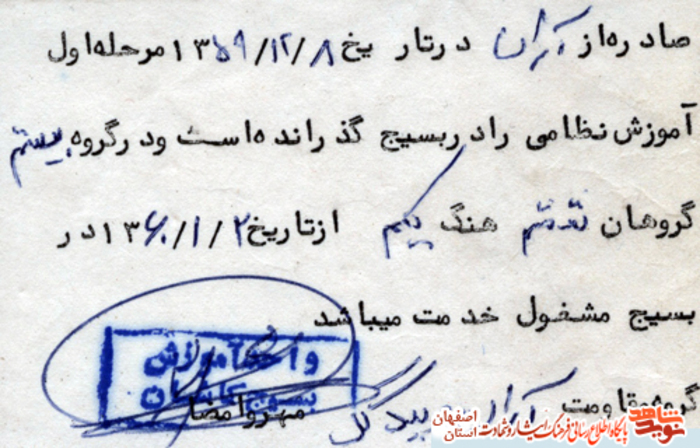 صادره از آران در تاریخ ۱۳۵۹/۱۲/۸ مرحله اول
آموزش نظامی را در بسیج گذرانده است و در گروه بیستم
گروهان هنگ یکم از تاریخ ۱۳۶۰/۱/۲ در
بسیج مشغول خدمت میباشد
واحد آموزش
بسیج کاشان
گروه مقاومت
مهر و امضا
نوید شاهد
پایگاه اطلاع رسانی فرهنگ ایثار و شهادت
استان اصفهان